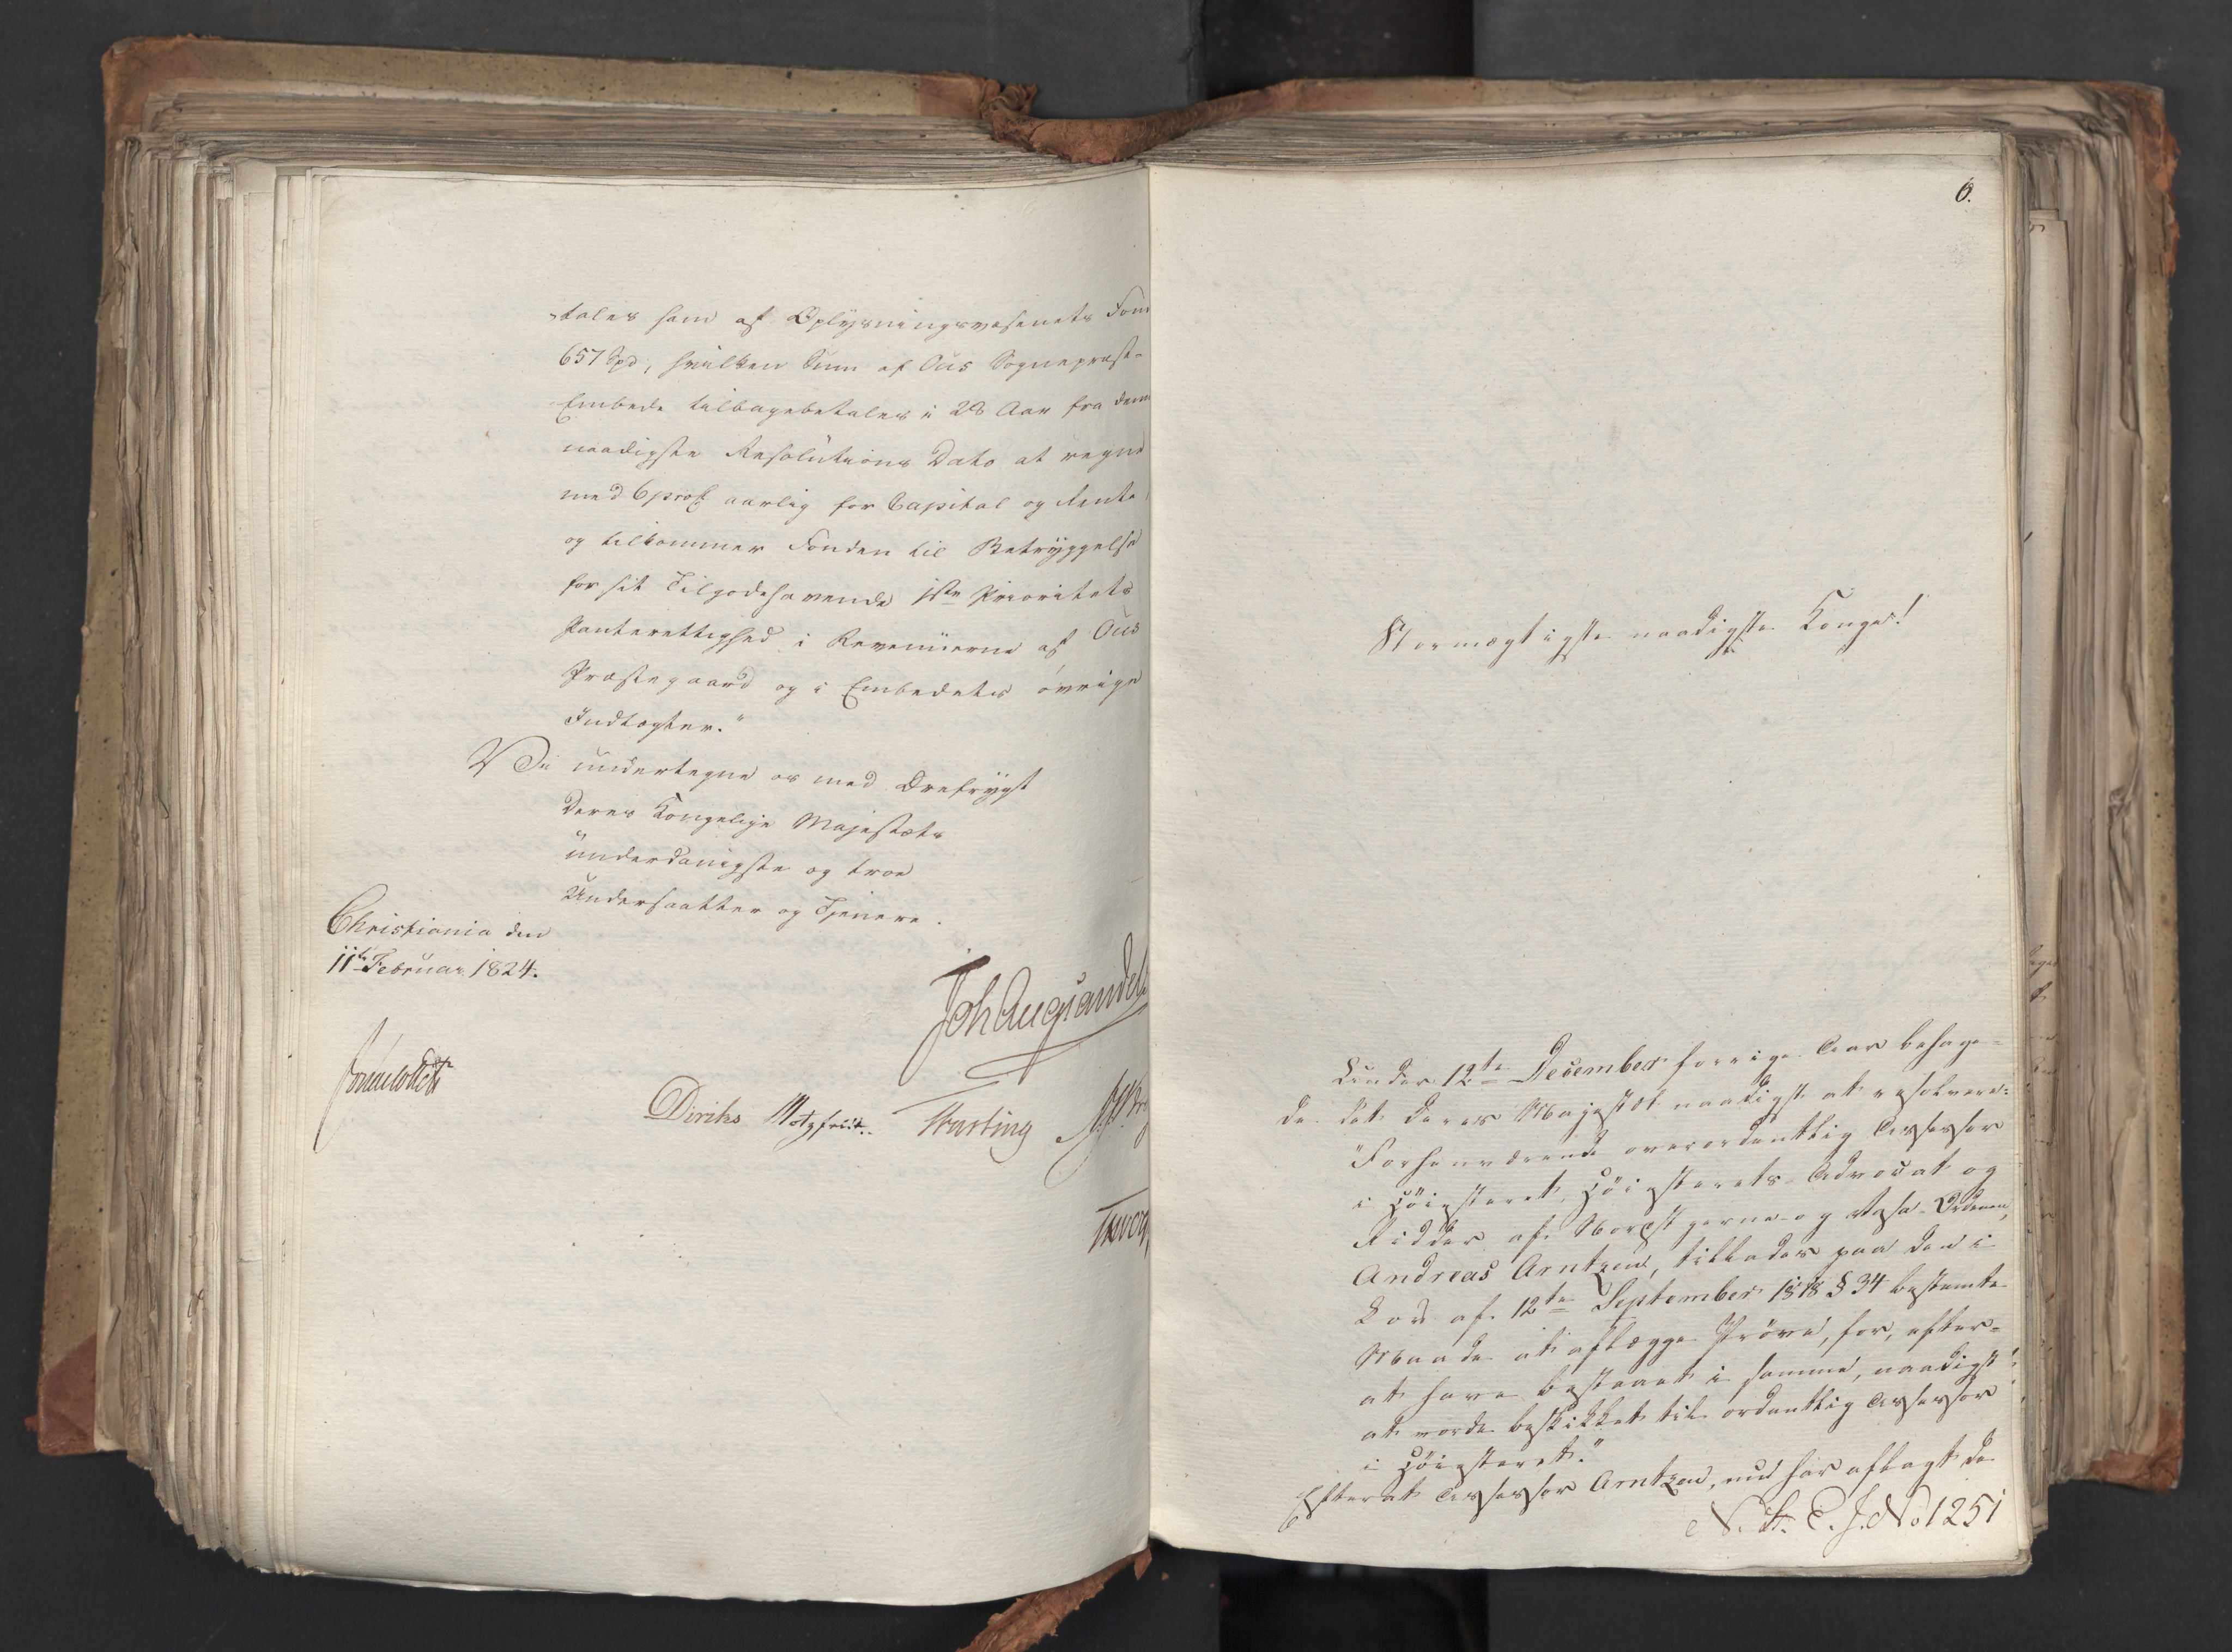 -tales ham af Oplysningsvæsenets Fond
657 Spd, hvilken Sum af Ous Sognepræst-
Embede tilbagebetales i 28 Aar fra denne
naadigste Resolutions Dato at regne
med 6 proC aarlig for Capital og Rente,
og tilkommer Fonden til Betryggelse
for sit Tilgodehavende 1ste Prioritets
Panterettighed i Revenüerne af Ous
Præstegaard og i Embedets øvrige
Indtægter."
Vi undertegne os med Ærefrygt
Deres Kongelige Majestæts
underdanigste og troe
Undersaatter og Tjenere.
Christiania den
11te Februar 1824.
Joh Aug Sandels
Diriks Motzfeldt. 
6.
Stormægtigste naadigste Konge!
Under 12te December forrige Aar behage-
de det Deres Majestæt naadigst at resolvere:
"Forhenværende overordentlig Assessor
i Høiesteret, Høiesterets-Advocat og
Ridder af Nordstjerne- og Vasa-Ordenen,
Andreas Arntzen, tillades paa den i
Lov af 12te September 1818 § 34 bestemte
Maade at aflægge Prøve, for, efter-
at have bestaaet i samme, naadigst
at vorde beskikket til ordentlig Assessor
i Høiesteret."
Efterat Assessor Arntzen, nu har aflagt de
N. St. E. J. No 1251